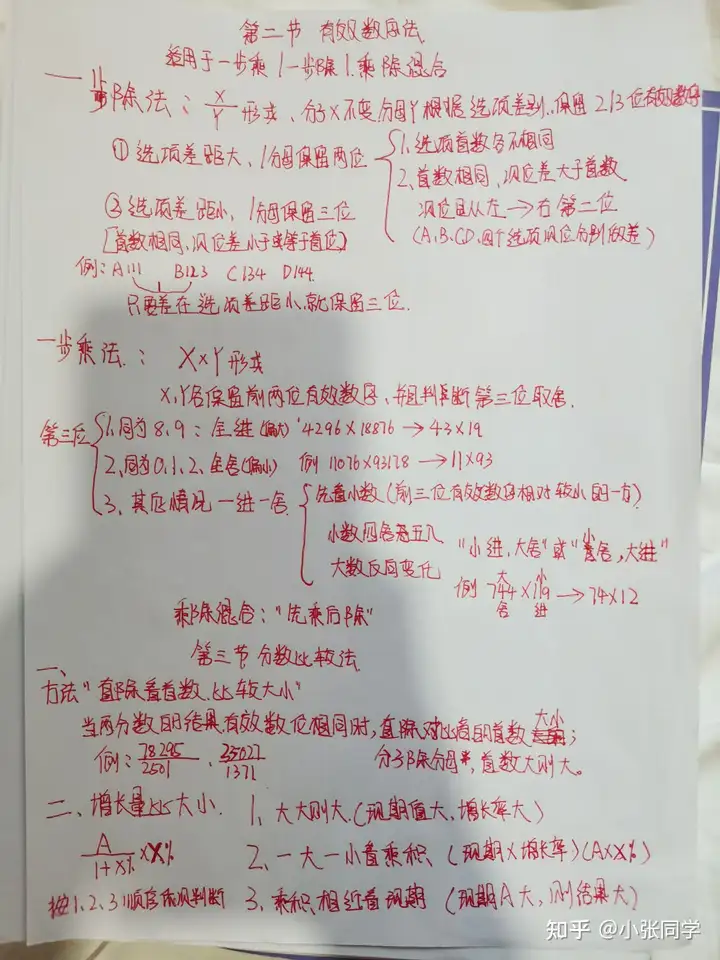 第二节 有效数字法
适用于一步乘/一步除/乘除混合
一步除法: X/Y 形式, 分子X不变分母Y根据选项差别, 保留2/3位有效数字
① 选项差距大, 分母保留两位 1. 选项首数各不相同
2、首数相同, 次位差大于首数
次位即从左→右第二位
(A、B、C、D、四个选项次位分别做差)
② 选项差距小, 分母保留三位
[首数相同, 次位差小于或等于首位]
例: A111 B123 C134 D144
只要存在选项差距小, 就保留三位.
一步乘法: X×Y形式
X, Y各保留前两位有效数字, 并且判断第三位取舍.
第三位 1. 同为8、9: 全进(偏大) 4296×18876→43×19
2、同为0、1、2、全舍(偏小) 例 11076×93178→11×93
3、其他情况一进一舍 先看小数(前三位有效数字相对较小的一方)
小数四舍五入 "小进, 大舍"或"小舍, 大进"
大数反向变化
例 744×119→74×12
大 小
舍 进
乘除混合: "先乘后除"
第三节 分数比较法
一、
方法"直除看首数, 比较大小"
当两分数的结果有效数位相同时, 直除对比商的首数大小;
例: 78295/2501 、 25027/1371 分子除分母, 首数大则大。
二、增长量比大小. 1、大大则大. (现期值大、增长率大)
A/1+X% ×X% 2、一大一小看乘积、(现期×增长率)(A×X%)
按1、2、3顺序依次判断 3、乘积相近看现期 (现期A大, 则结果大)
知乎 @小张同学